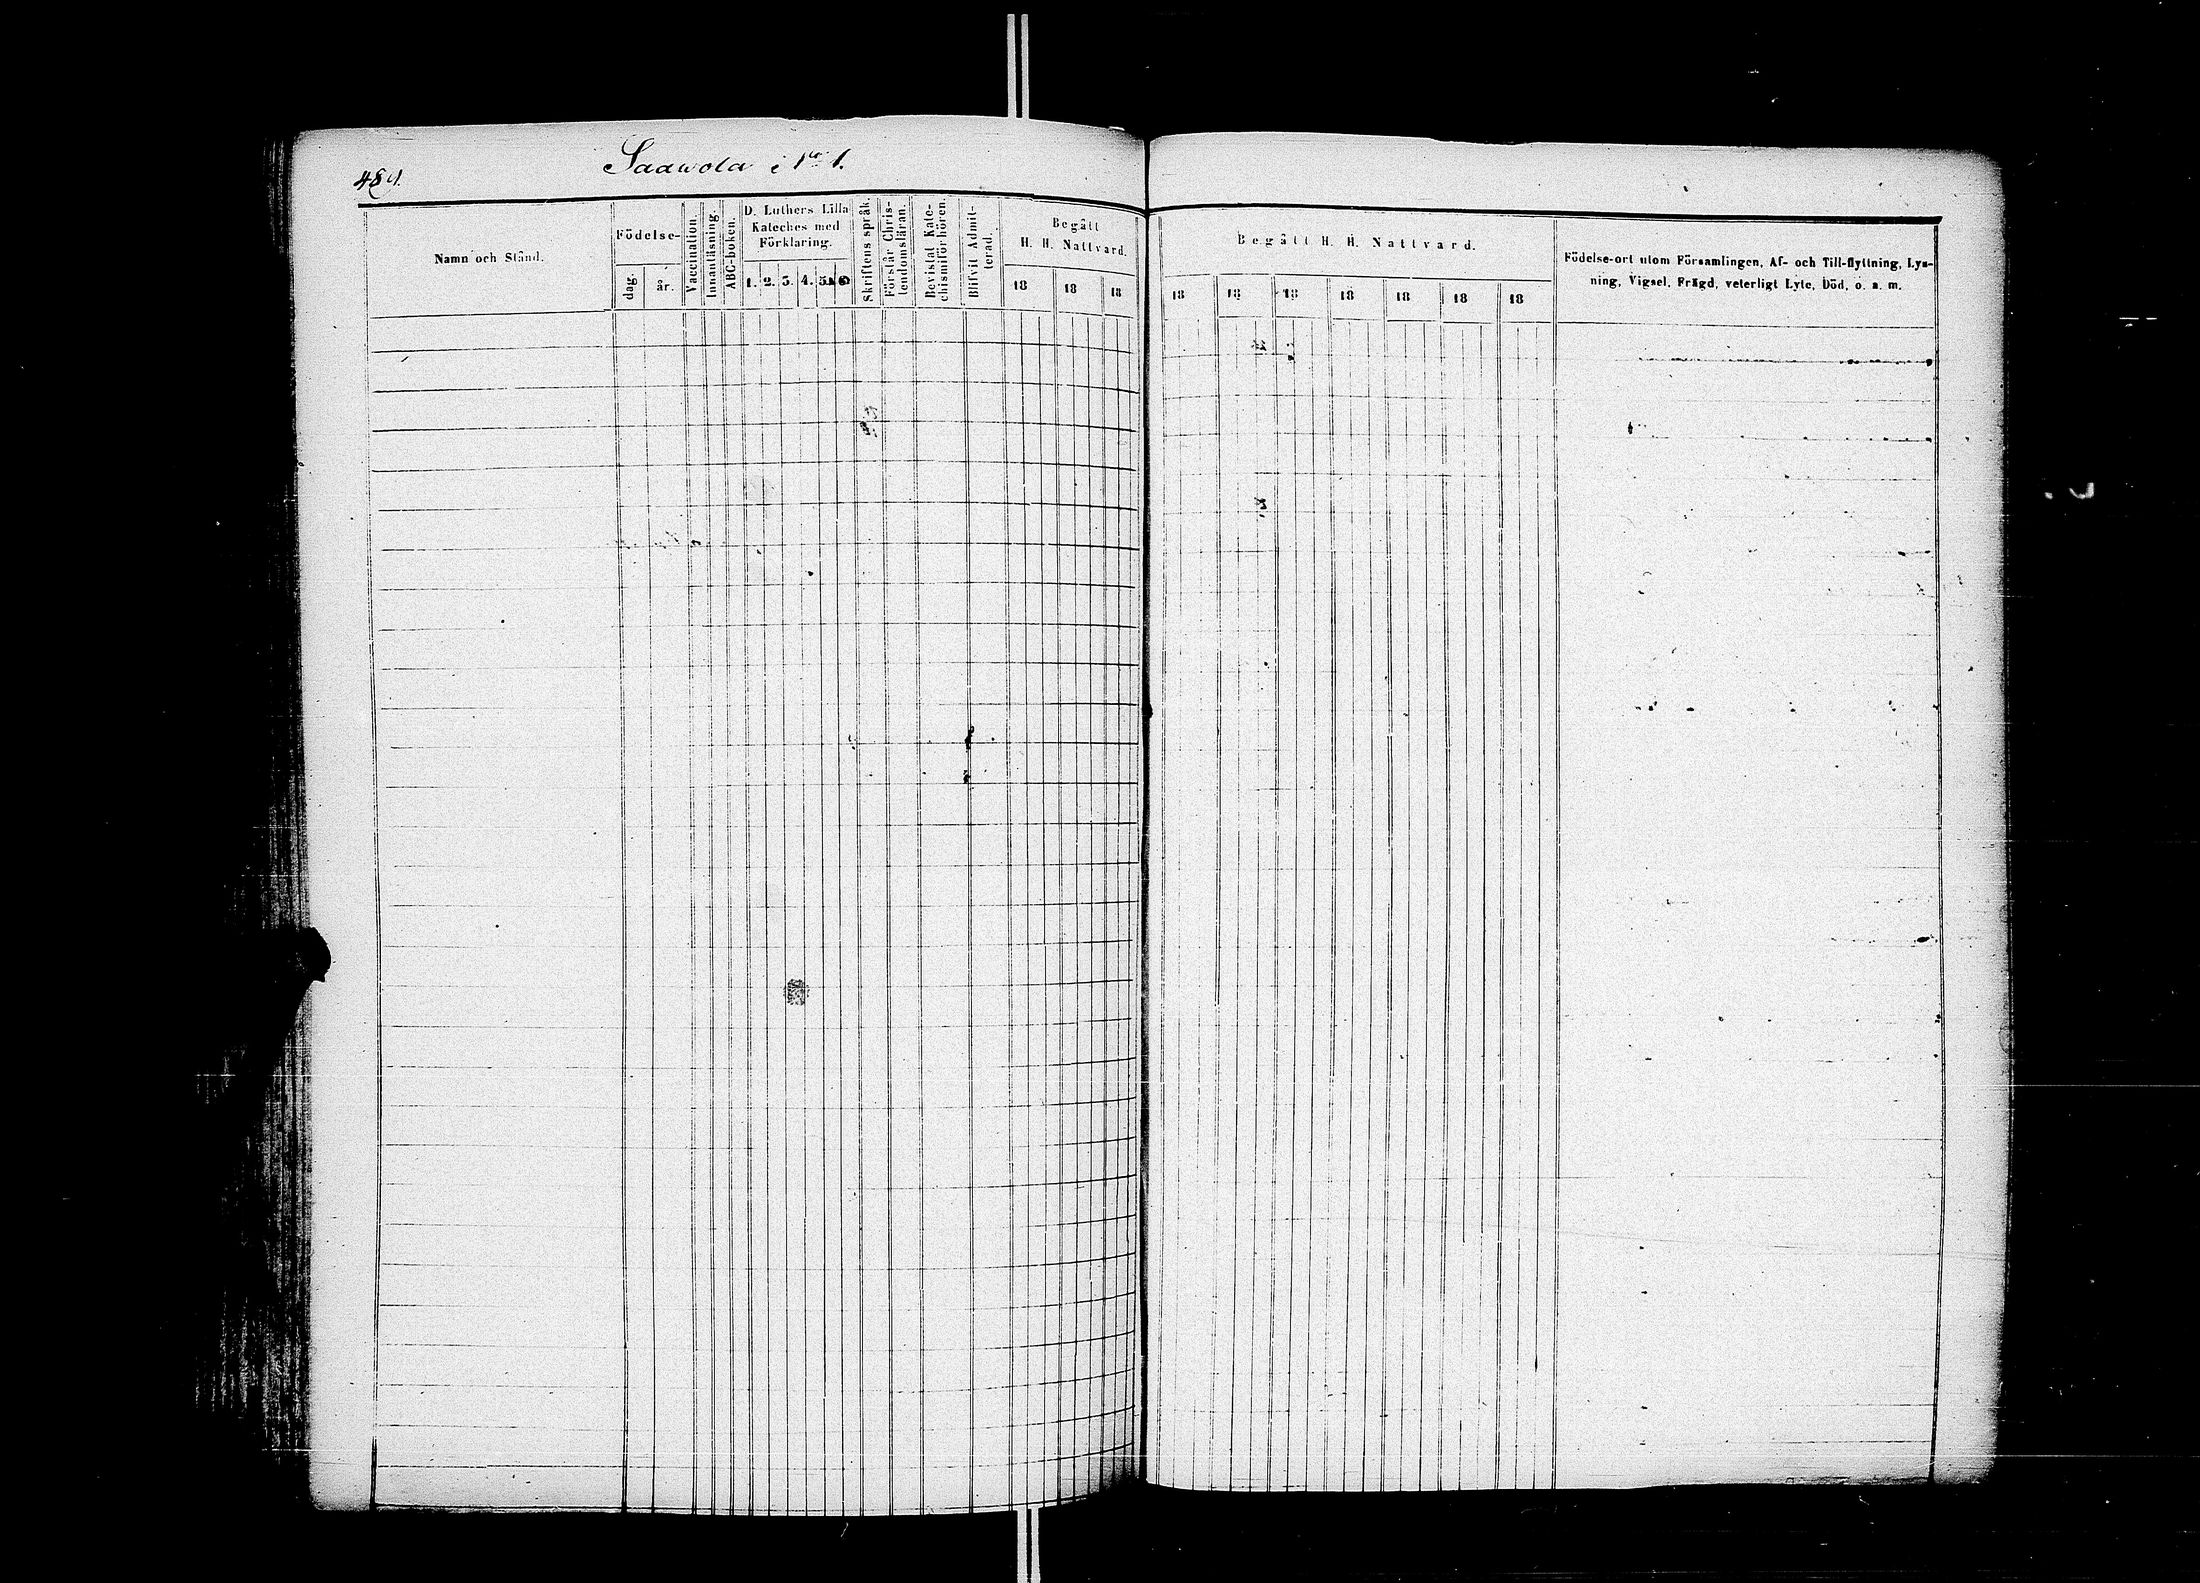 Saawola i No 1.
Namn och Stånd.
Födelse-
dag.
år.
Vaccination.
Innanläsning.
ABC-boken.
D. Luthers Lilla
Kateches med
Förklaring.
1. 2. 3. 4. 5.
Skriftens språk.
Förstår Chris-
tendomsläran.
Bevistat Kate-
chismiförhören.
Blifvit Admit-
terad.
Begått
H. H. Nattvard.
18 18 18
Begått H. H. Nattvard.
18 18 18 18 18 18 18
Födelse-ort utom Församlingen, Af- och Till-flyttning, Lys-
ning, Vigsel, Frägd, veterligt Lyte, Död, o. s. m.